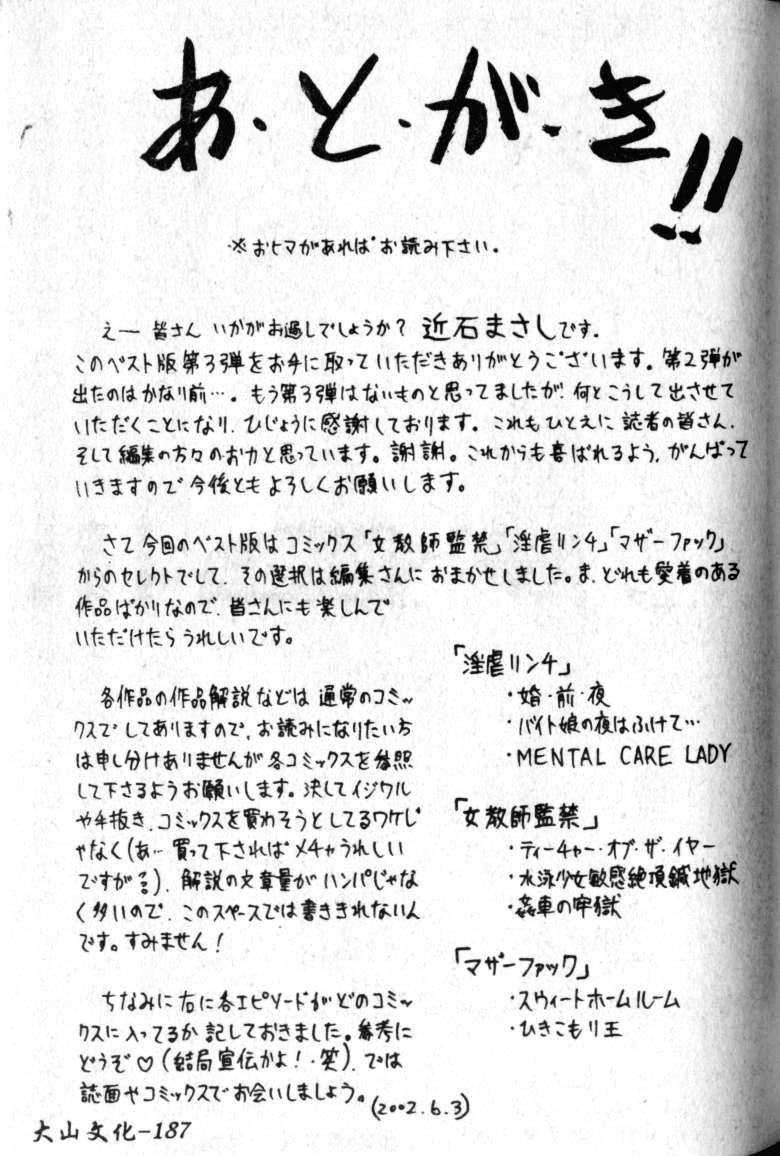 あ・と・が・き!!
※おヒマがあればお読み下さい。
えー 皆さん いかがお過しでしょうか? 近石まさしです.
このベスト版第3弾をお手に取っていただきありがとうございます。第2弾が
出たのはかなり前…。もう第3弾はないものと思ってましたが! 何とこうして出させて
いただくことになり、ひじょうに感謝しております。これもひとえに読者の皆さん、
そして編集の方々のお力と思っています。謝謝。これからも喜ばれるよう、がんばって
いきますので今後ともよろしくお願いします。
さて今回のベスト版はコミックス「女教師監禁」「淫虐リンチ」「マザーファック」
からのセレクトでして、その選択は編集さんにおまかせしました。ま、どれも愛着のある
作品ばかりなので、皆さんにも楽しんで
いただけたらうれしいです。
各作品の作品解説などは通常のコミッ
クスでしてありますので、お読みになりたい方
は申し分けありませんが各コミックスを参照
して下さるようお願いします。決してイジワル
や手抜き、コミックスを買わそうとしてるワケじ
ゃなく(あ…買って下さればメチャうれしい
ですが)、解説の文章量がハンパじゃな
く多いので、このスペースでは書ききれないん
です。すみません!
ちなみに右に各エピソードがどのコミッ
クスに入ってるか記しておきました。参考に
どうぞ♡(結局宣伝かよ!・笑)、では
誌面やコミックスでお会いしましょう。(2002.6.3)
「淫虐リンチ」
・婚・前・夜
・バイト娘の夜はふけて…
・MENTAL CARE LADY
「女教師監禁」
・ティーチャー・オブ・ザ・イヤー
・水泳少女敏感絶頂鍼地獄
・姦車の牢獄
「マザーファック」
・スウィートホームルーム
・ひきこもり王
大山文化-187